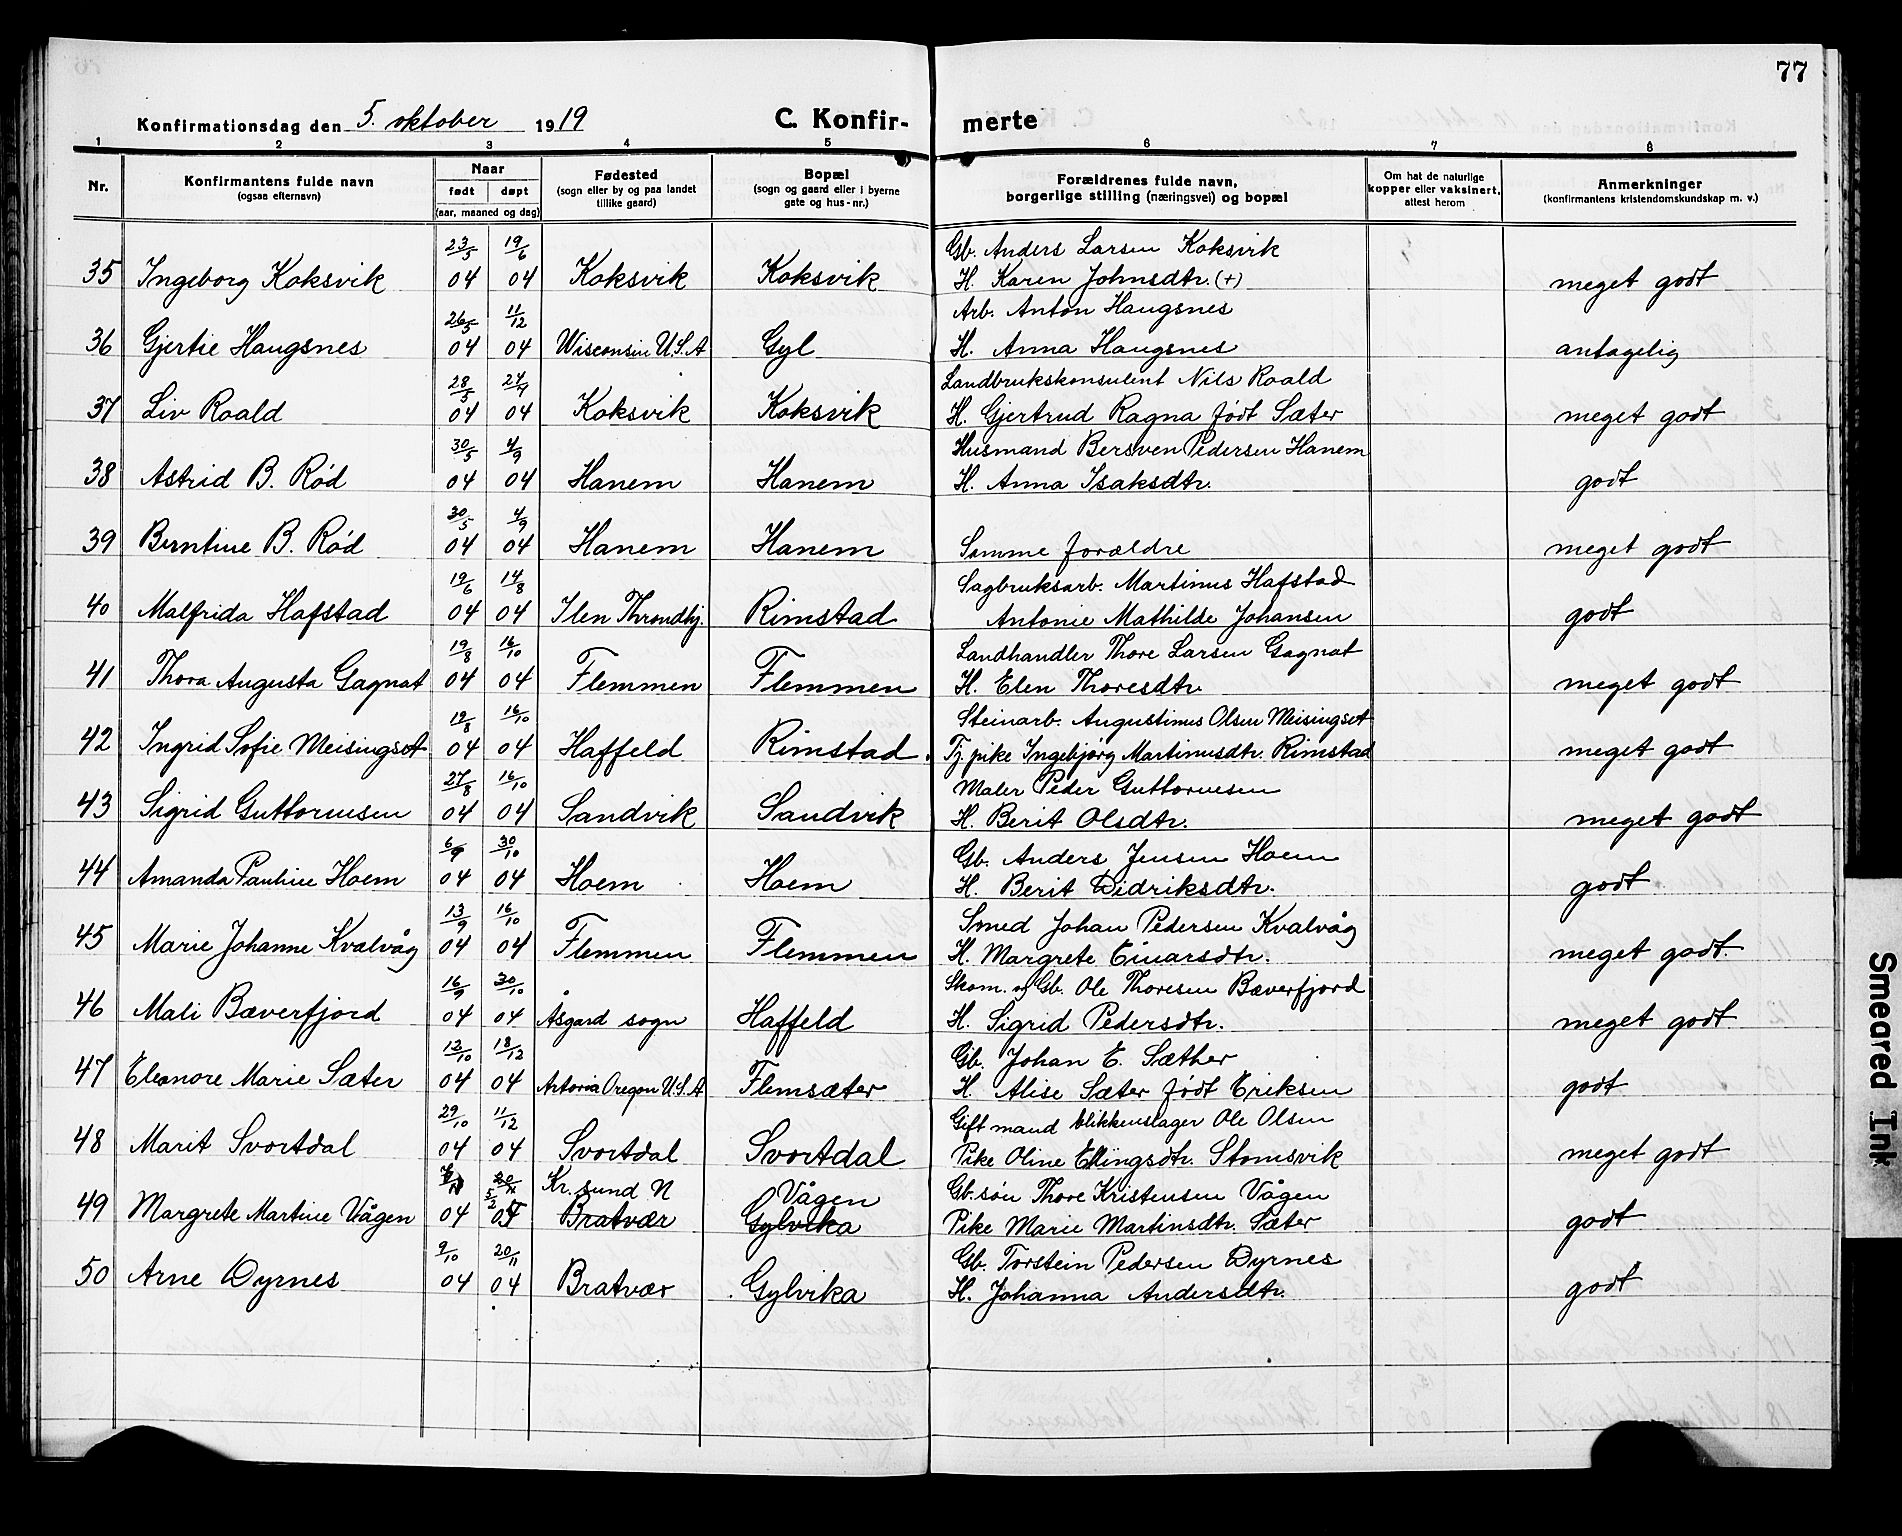 77
Konfirmationsdag den 5. oktober 1919 C. Konfir- merte
1 2 3 4 5 6 7 8
Nr. Konfirmantens fulde navn (ogsaa efternavn) Naar født døpt (aar, maaned og dag) Fødested (sogn eller by og paa landet tillike gaard) Bopæl (sogn og gaard eller i byerne gate og hus-nr.) Forældrenes fulde navn, borgerlige stilling (næringsvei) og bopæl Om hat de naturlige kopper eller vaksinert, attest herom Anmerkninger (konfirmantens kristendomskundskap m. v.)
23/5 19/6 Gb. Anders Larsen Koksvik
35 Ingeborg Koksvik 04 04 Koksvik Koksvik H. Karen Johnsdtr. (+) meget godt
26/5 11/12 Arb. Anton Haugsnes
36 Gjertie Haugsnes 04 04 Wisconsin U.S.A Gyl H. Anna Haugsnes antagelig
28/5 Landbrukskonsulent Nils Roald
37 Liv Roald 04 04 Koksvik Koksvik H. Gjertrud Ragna født Sæter meget godt
30/5 4/9 Husmand Bersven Pedersen Hanem
38 Astrid B. Rød 04 04 Hanem Hanem H. Anna Isaksdtr. godt
30/5 4/9
39 Berntine B. Rød 04 04 Hanem Hanem Samme forældre meget godt
19/6 14/8 Sagbruksarb. Martinus Hafstad
40 Malfrida Hafstad 04 04 Ilen Throndhj. Rimstad Antonie Mathilde Johansen godt
19/8 16/10 Landhandler Thore Larsen Gagnat
41 Thora Augusta Gagnat 04 04 Flemmen Flemmen H. Elen Thoresdtr. meget godt
19/8 16/10 Steinarb. Augustinus Olsen Meisingset
42 Ingrid Sofie Meisingset 04 04 Haffeld Rimstad Tj. pike Ingebjørg Martinusdtr. Rimstad meget godt
27/8 16/10 Maler Peder Guttormsen
43 Sigrid Guttormsen 04 04 Sandvik Sandvik H. Berit Olsdtr. meget godt
6/9 30/10 Gb. Anders Jensen Hoem
44 Amanda Pauline Hoem 04 04 Hoem Hoem H. Berit Didriksdtr. godt
13/9 16/10 Smed Johan Pedersen Kvalvåg
45 Marie Johanne Kvalvåg 04 04 Flemmen Flemmen H. Margrete Einarsdtr. meget godt.
16/9 30/10 Skom. og Gb. Ole Thoresen Bæverfjord
46 Mali Bæverfjord 04 04 Åsgard sogn Haffeld H. Sigrid Pedersdtr. meget godt
12/10 18/12 Gb. Johan E. Sæther
47 Eleonore Marie Sæter 04 04 Astoria Oregon U.S.A Flemsæter H. Alise Sæter født Eriksen godt
29/10 11/12 Gift mand blikkenslager Ole Olsen
48 Marit Svortdal 04 04 Svortdal Svortdal Pike Oline Ellingsdtr. Stomsvik meget godt
5/2 Kr. sund N Vågen Gb. søn Thore Kristensen Vågen
49 Margrete Martine Vågen 04 Bratvær Gylvika Pike Marie Martinsdtr. Sæter godt
9/10 20/11 Gb. Torstein Pedersen Dyrnes
50 Arne Dyrnes 04 04 Bratvær Gylvika H. Johanna Andersdtr. godt
Smeared Ink